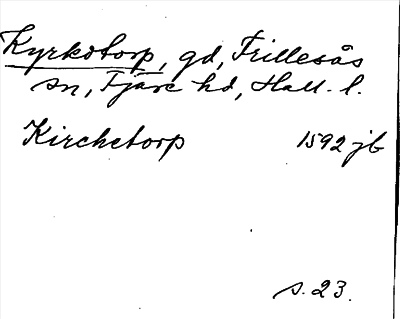 Kyrkotorp, gd, Frillesås
sn, Fjäre hd, Hall. l.
Kirchetorp 1592 jb
s. 23.